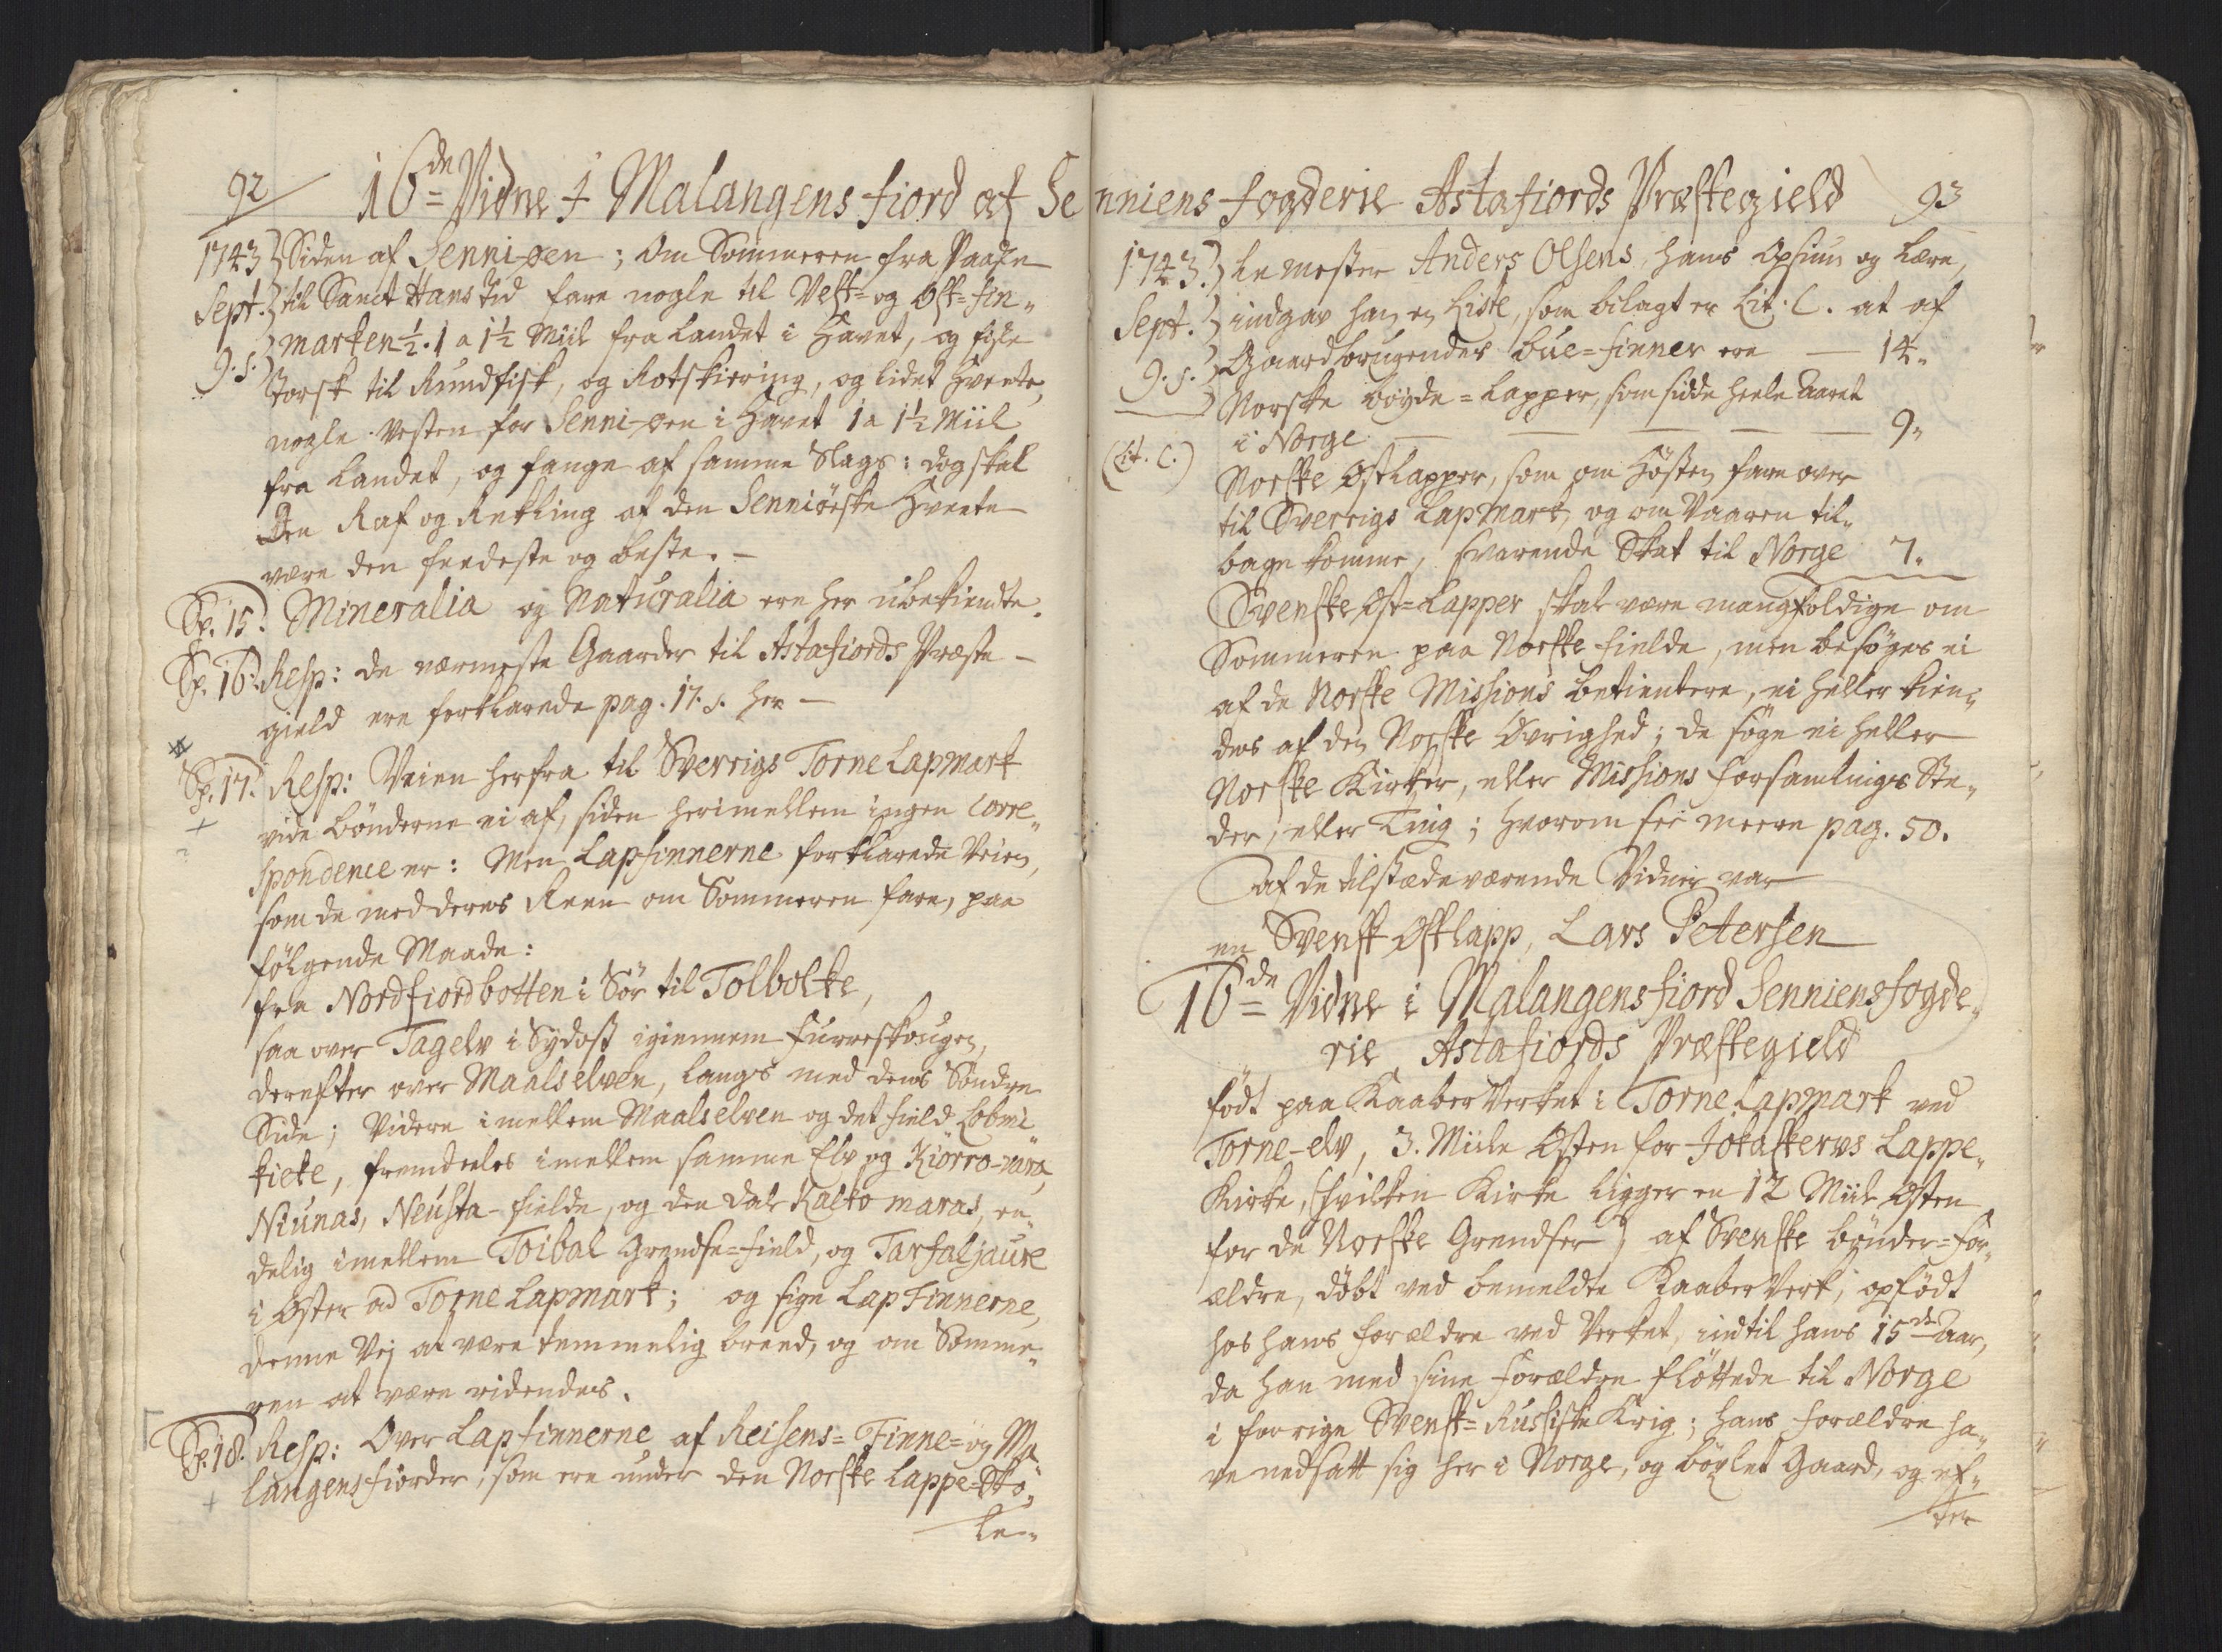 92
16de Vidne i Malangens fiord af Se
1743 Siden af Senni-øen; Om Sommeren fra Paaske
Sept. til Sanct Hans Tid fare nogle til Vest- og Øst-fin„
9. s. marken ½. 1 a 1½ Miil fra Landet i Havet, og fiske
Torsk til Rundfisk, og Rotskiering, og lidet Hveete,
nogle Vesten for Senni-øen i Havet 1 a 1½ Miil
fra Landet, og fange af samme Slags: dog skal
den Raf og Rekling af den Senniöeske Hveete
være den feedeste og beste. –
Sp. 15. Mineralia og Naturalia ere her ubekiendte.
Sp. 16. Resp: de nærmeste Gaarder til Astafiords Præste-
gield ere forklarede pag. 17. s. her –
Sp. 17. Resp: Veien herfra til Sverrigs Torne Lapmark
vide bönderne ei af, siden herimellem ingen Corre„
spondence er: Men Lapfinnerne forklarede Veien,
som de med deres Reen om Sommeren fare, paa
fölgende Maade:
fra Nordfiordbotten i Sör til Tolbolke,
saa over Tagelv i Sydost igiennem Furreskougen,
derefter over Maalselven, langs med dens Söndre
Side; Videre imellem Maalselven og det field Lobmi
kiete, fremdeeles imellem samme Elv og Kiörro-vara,
Niunas, Neusta-fielde, og den dal Kalko maras, en„
delig imellem Toibal Grendse-field, og Tarfaljaure
i Öster ad Torne Lapmark; og sige LapFinnerne,
denne Vej at være temmelig breed, og om Somme„
ren at være ridendes.
Sp. 18. Resp: Over Lapfinnerne af Reisens- Finne- og Ma„
langens fiorder, som ere under den Norske Lappe-Sko„
le„
nniens fogderie Astafiords Præstegield
93
1743. le mester Anders Olsens, hans Opsiun og Lære,
Sept. indgav han en Liste, som bilagt er Lit. C. at af
9. s. Gaardbrugendes bue-finner ere — 14„
Norske böyde-Lapper, som sidde heele Aaret
i Norge — — — — 9„
(Lit. C.)
Norske Östlapper, som om Hösten fare over
til Sverrigs Lapmark, og om Vaaren til„
bage komme, svarende Skat til Norge 7.
Svenske Öst-Lapper skal være mangfoldige om
Sommeren paa Norske fielde, men besöges ei
af de Norske Missions betientere, ei heller kien„
des af den Norske Övrighed; de söge ei heller
Norske Kirker, eller Missions Forsamlings Ste„
der, eller Ting; hvorom see meere pag. 50.
Af de tilstædeværende Vidner var
en Svensk Östlapp, Lars Petersen
16de Vidne i Malangens fiord Senniens fogde„
rie, Astafiords Præstegield
födt paa KaaberVerket i Torne Lapmark ved
Torne-elv, 3. Miile Östen for Jokaskervs Lappe„
Kirke, (hvilken Kirke ligger en 12 Miil Östen
for de Norske Grendser) af Svenske bönder-for„
ældre, döbt ved bemeldte KaaberVerk, opfödt
hos hans forældre ved Verket, indtil hans 15de Aar,
da han med sine Forældre flöttede til Norge
i forrige Svensk-Russiske Krig; hans forældre ha„
ve nedsatt sig her i Norge, og böxlet Gaard, og ef„
ter